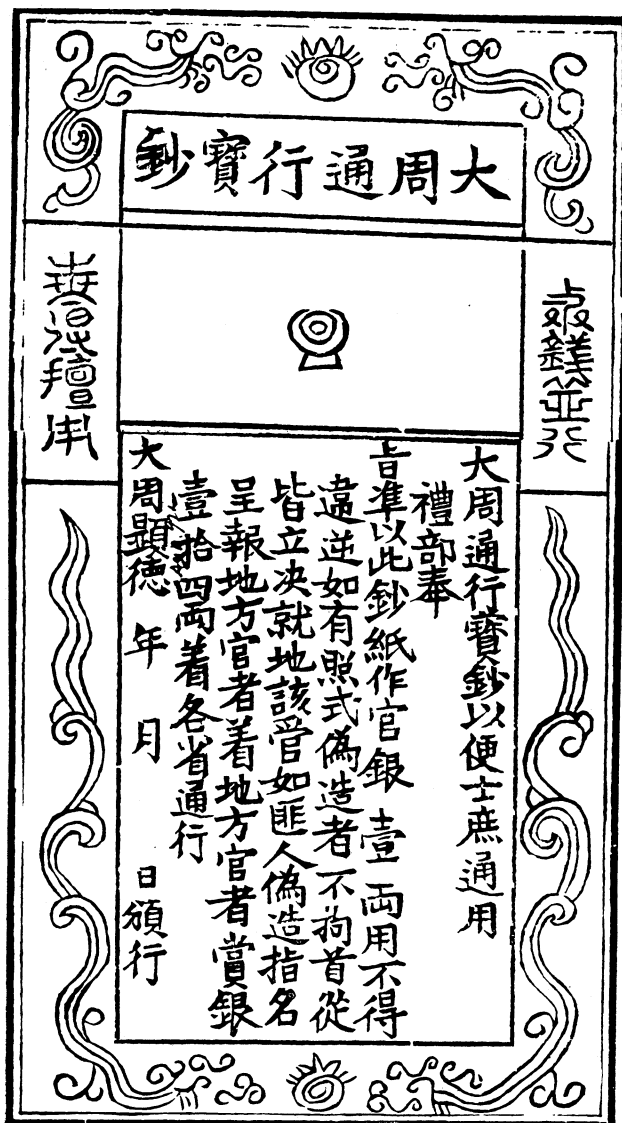 大周通行寶鈔
大周通行寶鈔以便士庶通用
禮部奉
旨準以此鈔紙作官銀 壹 兩用不得
違逆如有照式偽造者不拘首從
皆立决就地該管如匪人偽造指名
呈報地方官者着地方官者賞銀
壹拾四兩着各省通行
大周顯德 年 月 日頒行